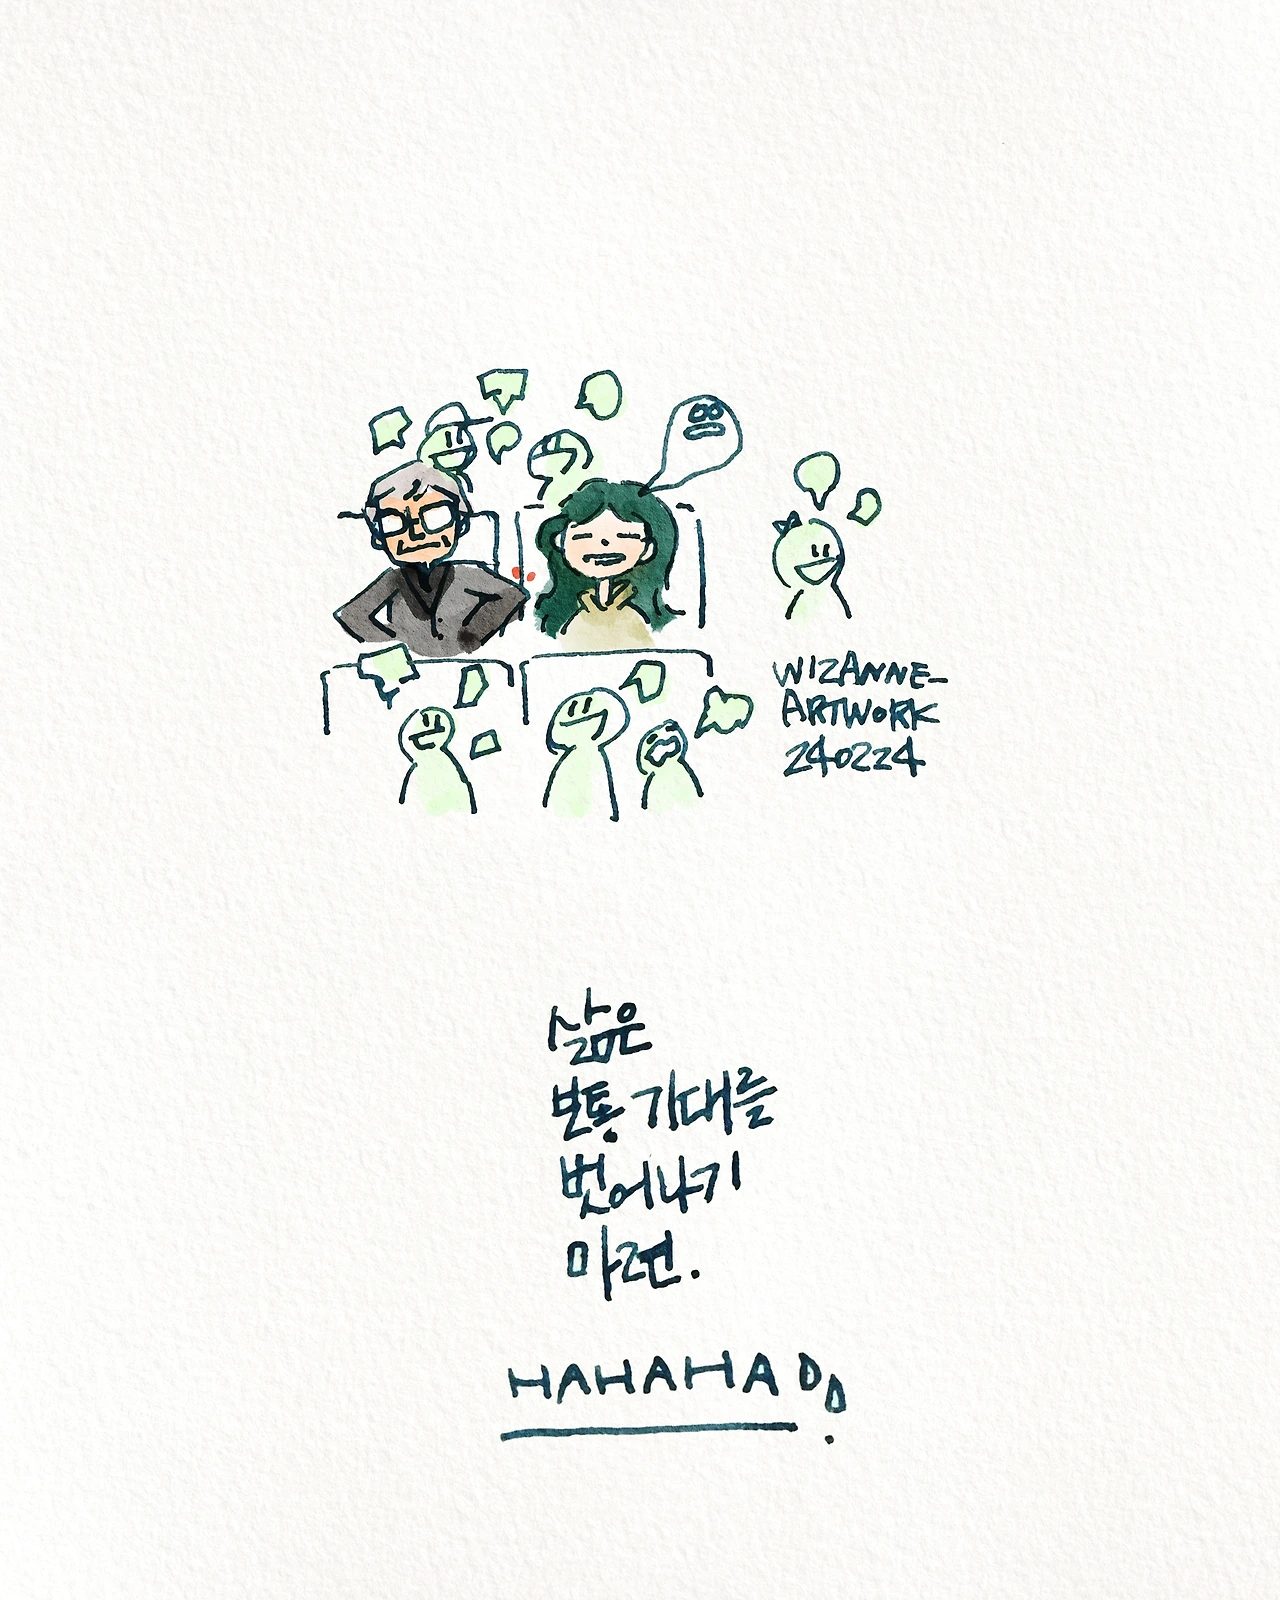 WIZANNE-
ARTWORK
240224
삶은
보통 기대를
벗어나기
마련.
HAHAHA